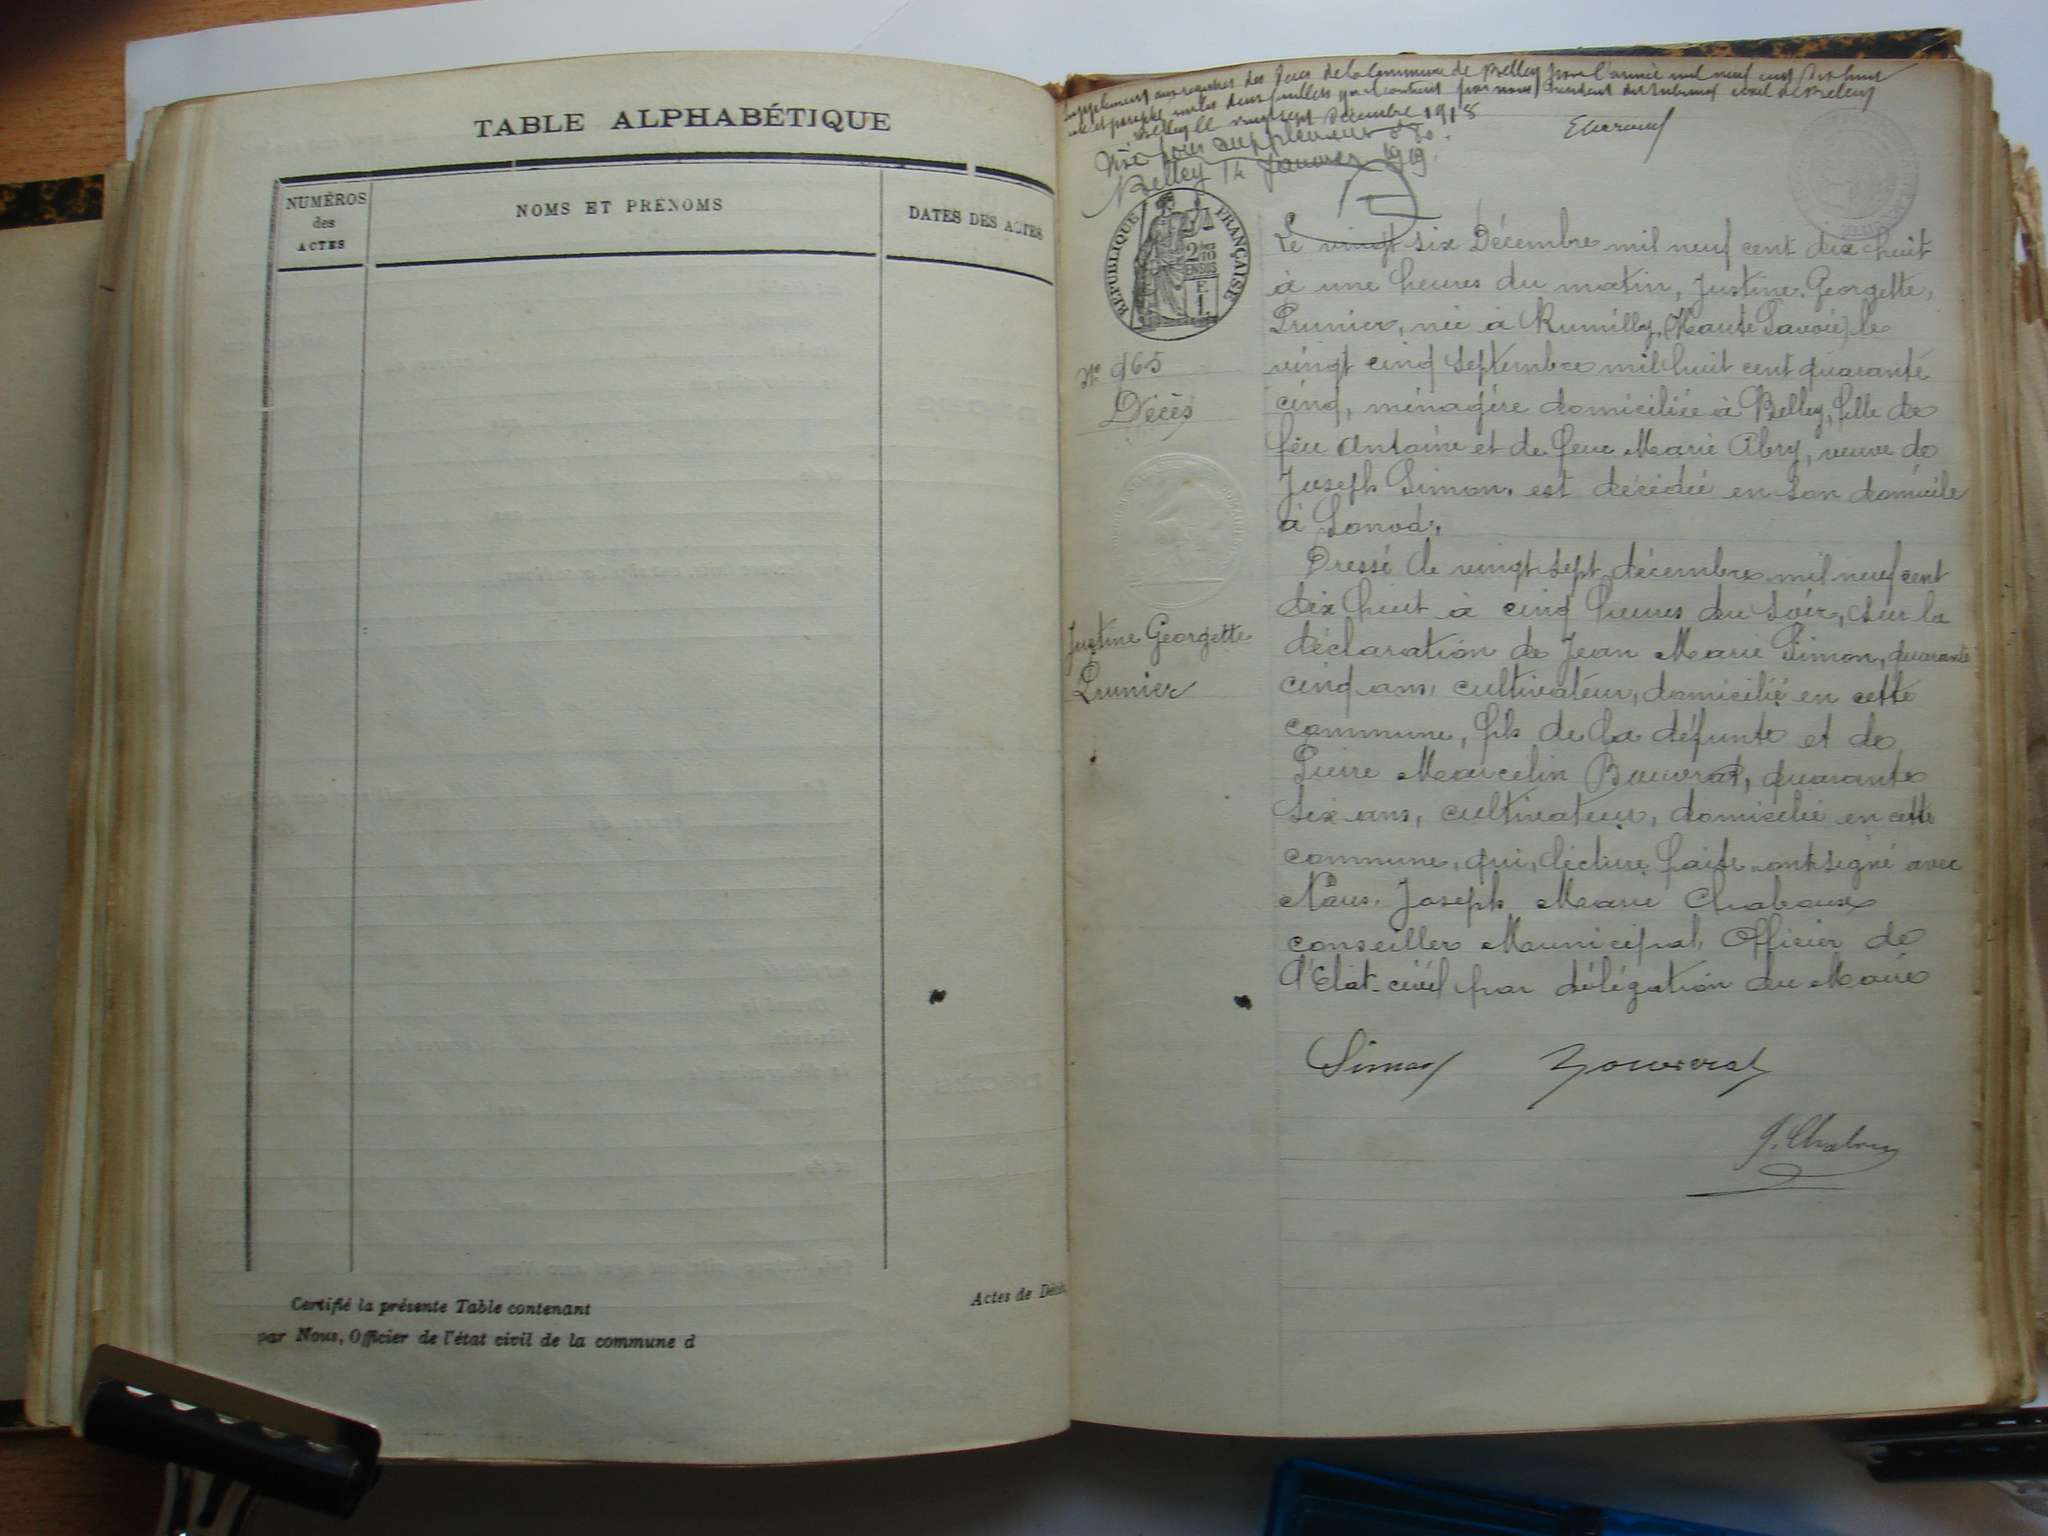 TABLE ALPHABÉTIQUE
NUMÉROS
des
ACTES
NOMS ET PRÉNOMS
DATES DES ACTES
Certifié la présente Table contenant
par Nous, Officier de l'état civil de la commune d
Actes de Décè
Supplément aux registres des de la Commune de Belley pour l'année mil neuf cent dix huit
et paraphé deux feuillets par nous Président du tribunal civil de Belley
Belley le vingt sept Décembre 1918
Visé pour supplément
Belley 14 Janvier 1919.
RÉPUBLIQUE FRANÇAISE
2/10
EN SUS
E
1.
N° 965
Décès
Justine Georgette
Prunier
Le vingt six Décembre mil neuf cent dix huit
à une heures du matin, Justine Georgette,
Prunier, née à Rumilly, (Haute Savoie) le
vingt cinq septembre mil huit cent quarante
cinq, ménagère domiciliée à Belley, fille de
feu Antoine et de feue Marie Abry, veuve de
Joseph Simon, est décédée en son domicile
à
Dressé le vingt sept décembre mil neuf cent
dix huit à cinq heures du soir, sur la
déclaration de Jean Marie Simon, quarante
cinq ans, cultivateur, domicilié en cette
commune, fils de la défunte et de
Pierre Marcelin Bouvrat, quarante
six ans, cultivateur, domicilié en cette
commune, qui, lecture faite ont signé avec
Nous, Joseph Marie Chaboux
conseiller Municipal, Officier de
l'Etat-civil par délégation du Maire
Simon
J. Chaboux